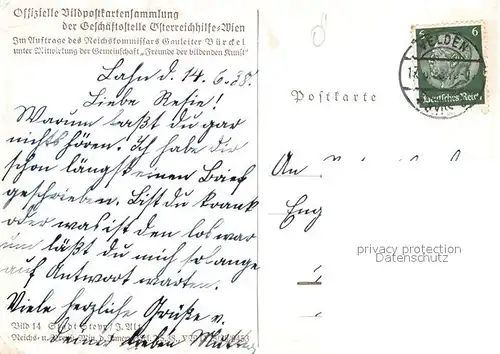 Offizielle Bildpostkartensammlung
der Geschäftsstelle Österreichhilfe-Wien
Im Auftrage des Reichskommissars Gauleiter Bürckel
unter Mitwirkung der Gemeinschaft „Freunde der bildenden Kunst"
Lahn d. 14. 6. 38.
Liebe Resie!
Warum laßt du gar
nichts hören. Ich habe dir
schon längst einen Brief
geschrieben. Bist du krank
oder was ist den los war
um läßt du mich so lange
auf Antwort warten.
Viele herzliche Grüße v.
Deiner lieben Mutter
Bild 14 Stadt Steyr
Reichs- u.
Postkarte
VELDEN
6 6
Deutsches Reich
An
Eng
privacy protection
Datenschutz